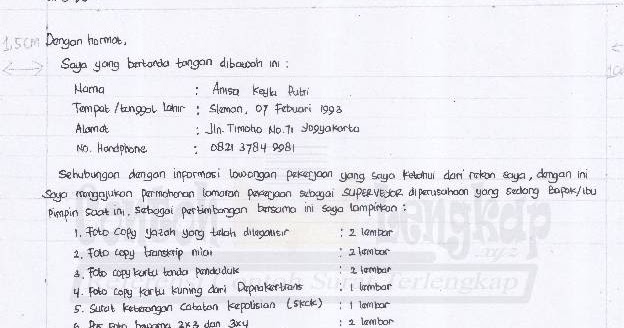 1,5cm Dengan hormat,
Saya yang bertanda tangan dibawah ini :
Nama : Anisa Keyla Putri
Tempat / tanggal lahir : Sleman, 07 Febuari 1993
Alamat : Jln. Timoho No.71 Yogyakarta
No. Handphone : 0821 3784 9981
Sehubungan dengan informasi lowongan pekerjaan yang saya ketahui dari rekan saya, dengan ini
Saya mengajukan permohonan lamaran pekerjaan sebagai SUPERVISOR diperusahaan yang sedang Bapak/ibu
Pimpin saat ini. sebagai pertimbangan bersama ini saya lampirkan :
1. Foto copy yazah yang telah dilegalisir : 2 lembar
2. Foto copy transkrip nilai : 2 lembar
3. Foto copy kartu tanda penduduk : 2 lembar
4. Foto copy kartu kuning dari Depnakertrans : 1 lembar
5. Surat keterangan Catatan kepolisian (skck) : 1 lembar
6. Pas Foto 2x3 dan 3x4 : 2 lembar
lengkap
.xyz
Terlengkap